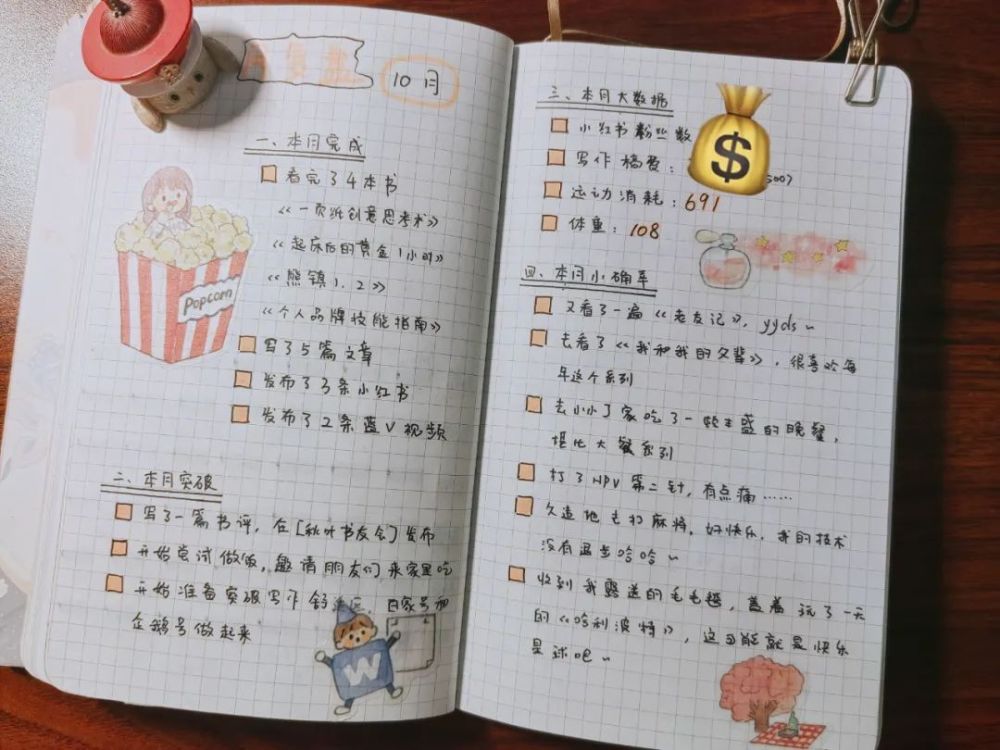 月复盘
10月
一、本月完成
看完了4本书
《一页纸创意思考术》
《起床后的黄金1小时》
《熊镇1、2》
《个人品牌技能指南》
写了5篇文章
发布了3条小红书
发布了2条蓝V视频
Popcorn
二、本月突破
写了一篇书评，在[秋叶书友会]发布
开始尝试做饭，邀请朋友们来家里吃
开始准备突破写作舒适区，百家号和
企鹅号做起来
W
三、本月大数据
小红书粉丝数
写作稿费：
$
运动消耗：691
体重：108
四、本月小确幸
又看了一遍《老友记》，yyds~
去看了《我和我的父辈》，很喜欢每
年这个系列
去小小丁家吃了一顿丰盛的晚餐，
堪比大餐系列
打了HPV第二针，有点痛……
久违地去打麻将，好快乐，我的技术
没有退步哈哈~
收到我露送的毛毛毯，盖着玩了一天
的《哈利波特》，这可能就是快乐
星球吧~